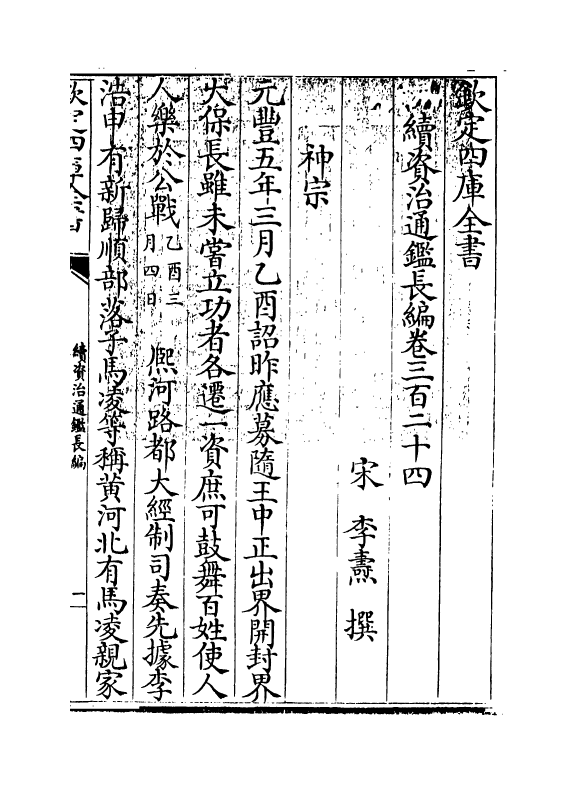 欽定四庫全書
續資治通鑑長編卷三百二十四
宋 李燾 撰
神宗
元豐五年三月乙酉詔昨應募隨王中正出界開封界
大保長雖未嘗立功者各遷一資庶可鼓舞百姓使人
人樂於公戰乙酉三
月四日熈河路都大經制司奏先據李
浩申有新歸順部落子馬凌等稱黄河北有馬凌親家
續資治通鑑長編